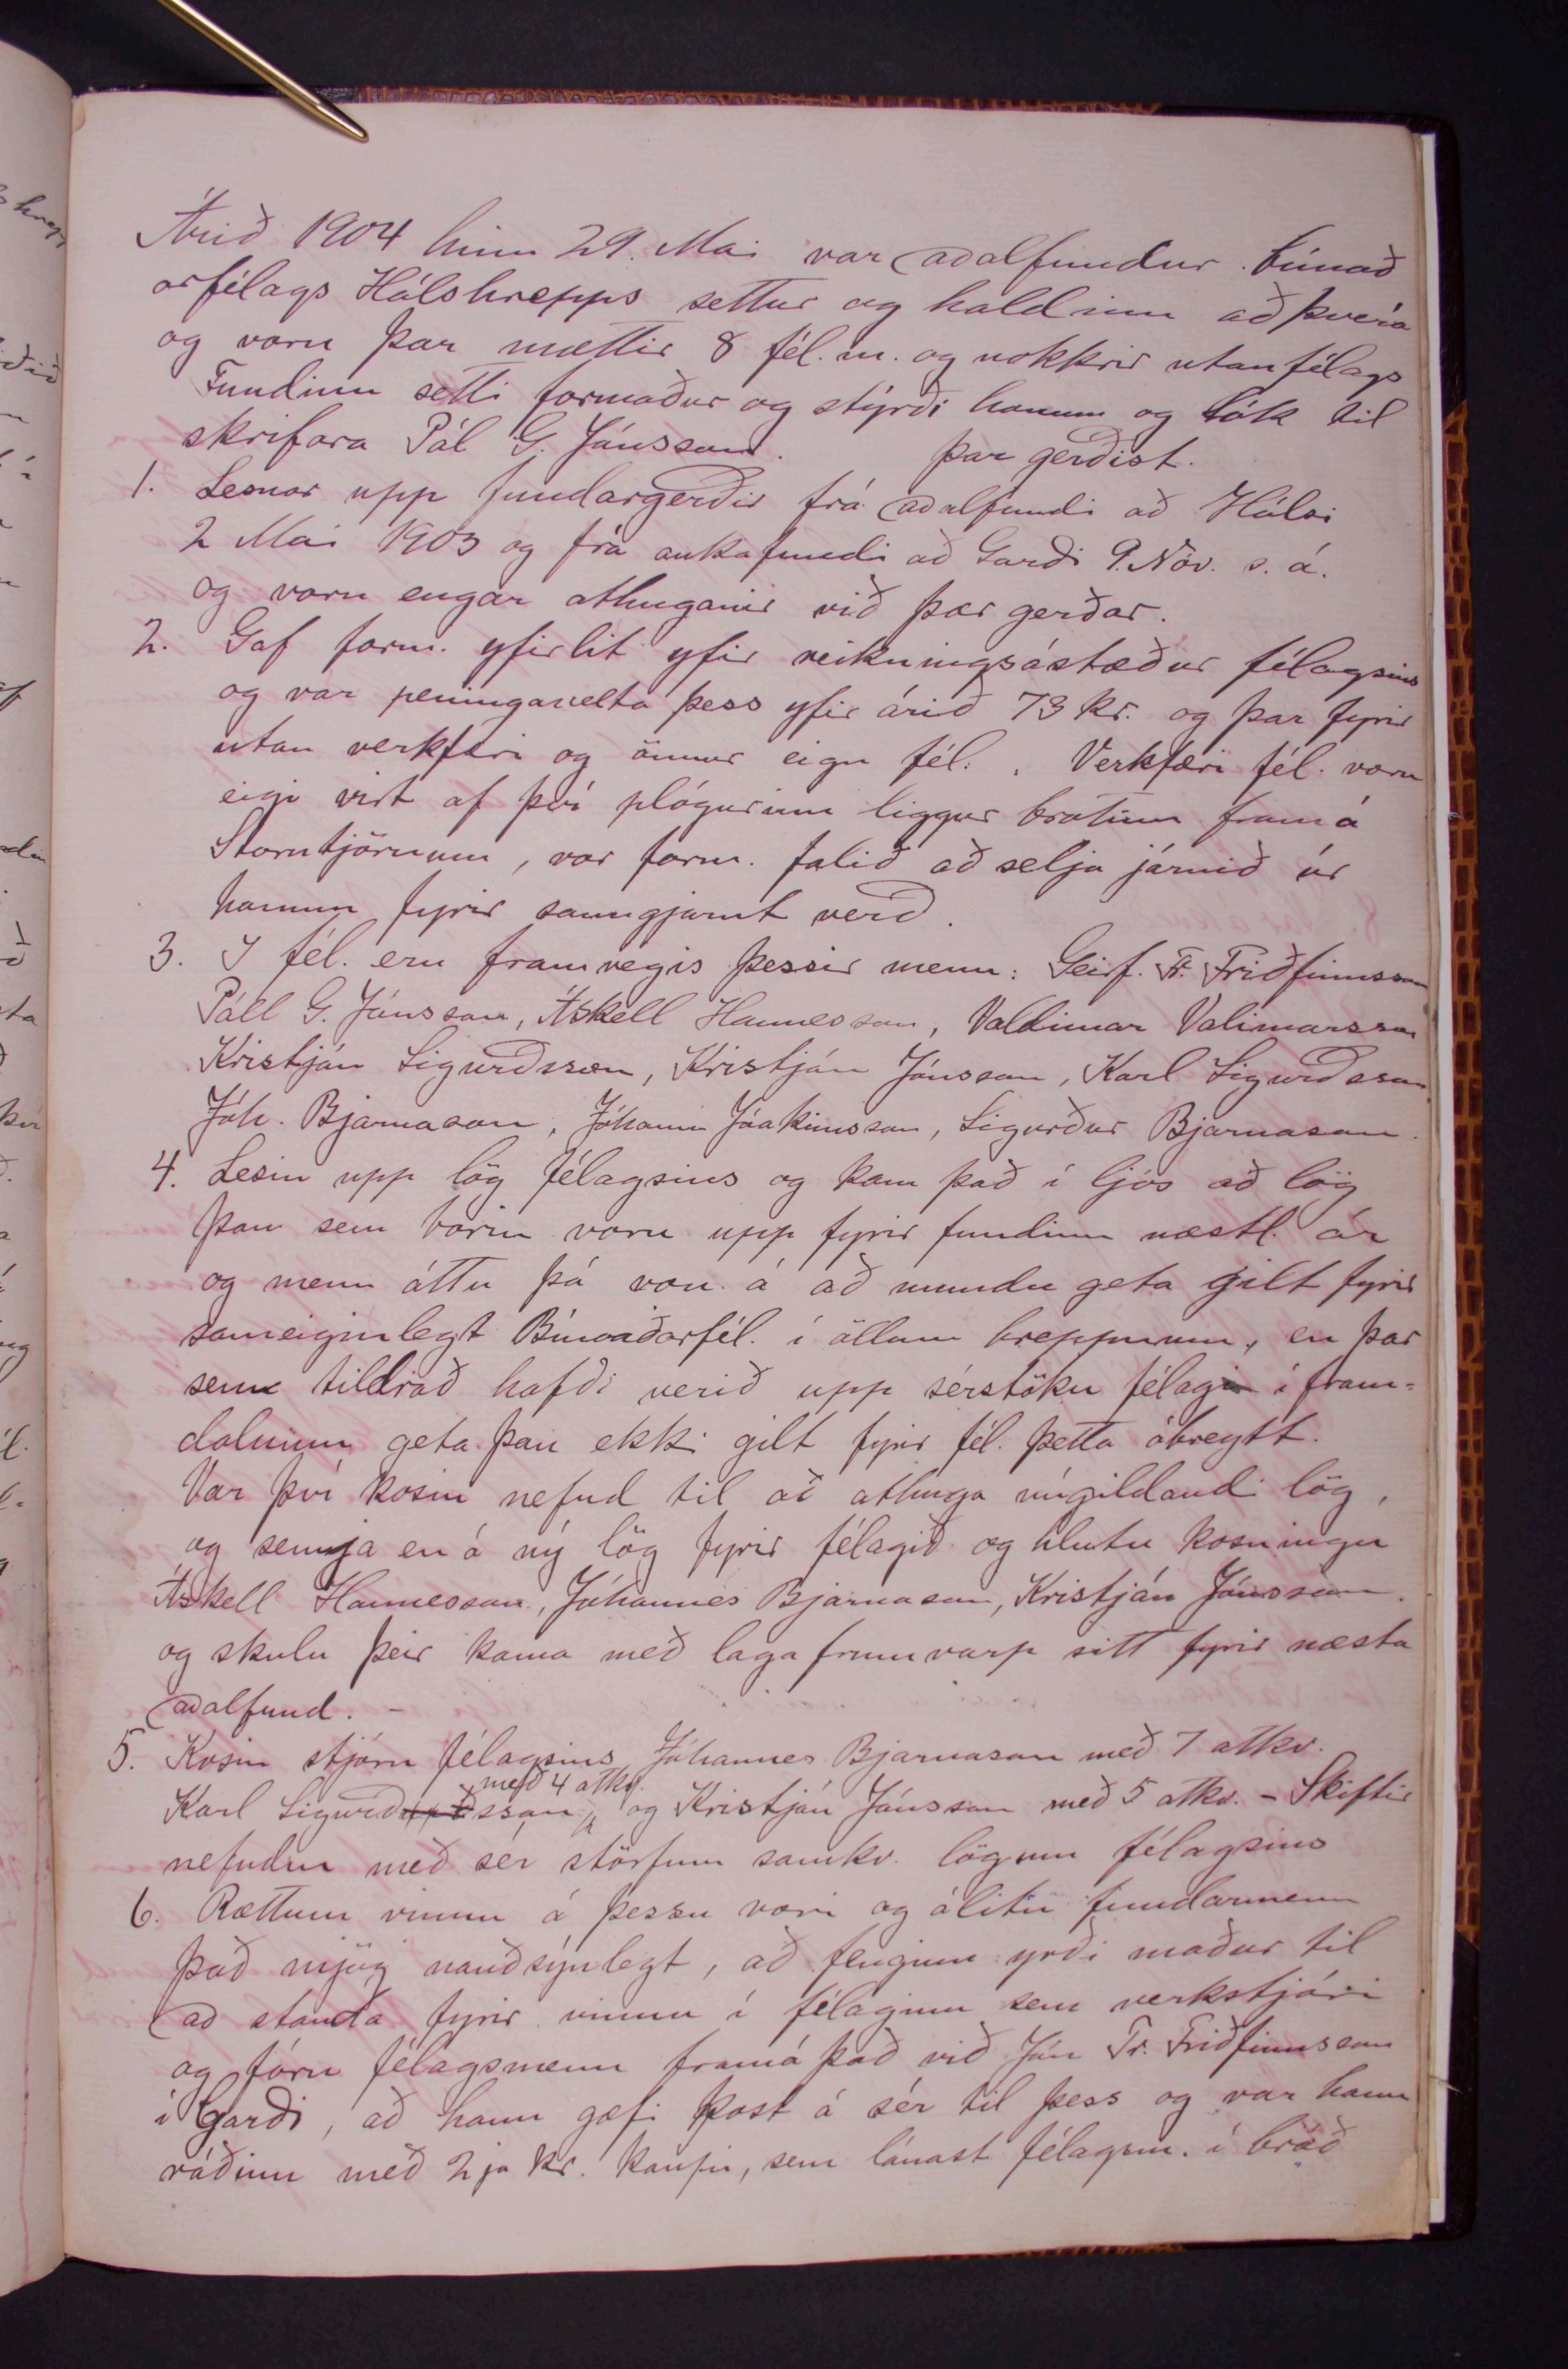 Árið 1904 hinn 29. Mai var aðalfundur búnað
arfélags Hálshrepps settur og haldinn að Þverá
og voru þar mættir 8 fél.m. og nokkrir utanfélags
Fundinn setti formaður og stýrði honum og tók til
skrifara Pál G. Jónsson. Þar gerðist.
1. Lesnar upp fundargerðir frá aðalfundi að Hálsi
2 Mai 1903 og frá aukafundi að Garði 9. Nóv. s. á.
og voru engar athuganir við þær gerðar.
2. Gaf form. yfirlit yfir reikningsástæður félagsins
og var peningavelta þess yfir árið 73 kr. og þar fyrir
utan verkfæri og önnur eign fél. . Verkfæri fél. voru
eigi virt af því plógurinn liggur brotinn framá
Storutjörnum, var form. falið að selja járnið úr
honum fyrir sanngjarnt verð.
3. I fél. eru framvegis þessir menn: Geirf. Tr. Friðfinnsson
Páll G. Jónsson, Áskell Hannesson, Valdimar Valimarsson
Kristján Sigurðsson, Kristján Jónsson, Karl Sigurðsson
Jóh. Bjarnason, Jóhann Jóakimsson, Sigurður Bjarnason.
4. Lesin upp lög félagsins og kom það í ljós að lög
þau sem borin voru upp fyrir fundinn næstl. ár
og menn áttu þá von á að mundu geta gilt fyrir
sameiginlegt Búnaðarfél. í öllum hreppnum, en þar
sem tildrað hafði verið upp sérstöku félagi í fram-
dalnum geta þau ekki gilt fyrir fél. þetta óbreytt.
Var því kosin nefnd til að athuga núgildandi lög,
og semja en á ný lög fyrir félagið og hlutu kosningu
Áskell Hannesson, Jóhannes Bjarnason, Kristján Jónsson.
og skulu þeir koma með lagafrumvarp sitt fyrir næsta
aðalfund. -
5. Kosin stjórn félagsins Jóhannes Bjarnason með 7 atkv.
með 4 atkv.
Karl Sigurðsson, og Kristján Jónsson með 5 atkv. - Skiftir
nefndin með sér störfum samkv. lögum félagsins
6. Rættum vinnu á þessu vori og álitu fundarmenn
það mjög nauðsýnlegt, að fenginn yrði maður til
að standa fyrir vinnu í félaginu sem verkstjóri
og fóru félagsmenn framá það við Jón Tr. Friðfinnsson
í Garði, að hann gæfi kost á sér til þess og var hann
ráðinn með 2ja kr. kaupi, sem lánast félagsm. í bráð